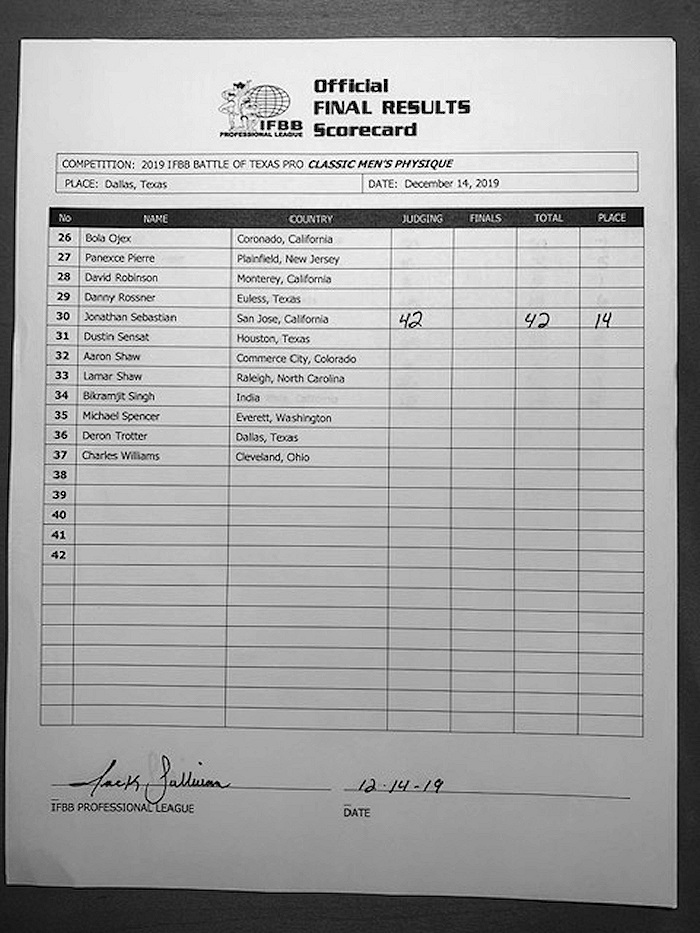 Official
FINAL RESULTS
Scorecard
IFBB
PROFESSIONAL LEAGUE
COMPETITION: 2019 IFBB BATTLE OF TEXAS PRO CLASSIC MEN'S PHYSIQUE
PLACE: Dallas, Texas DATE: December 14, 2019
No NAME COUNTRY JUDGING FINALS TOTAL PLACE
26 Bola Ojex Coronado, California
27 Panexce Pierre Plainfield, New Jersey
28 David Robinson Monterey, California
29 Danny Rossner Euless, Texas
30 Jonathan Sebastian San Jose, California 42 42 14
31 Dustin Sensat Houston, Texas
32 Aaron Shaw Commerce City, Colorado
33 Lamar Shaw Raleigh, North Carolina
34 Bikramjit Singh India
35 Michael Spencer Everett, Washington
36 Deron Trotter Dallas, Texas
37 Charles Williams Cleveland, Ohio
38
39
40
41
42
Jack Sullivan 12-14-19
IFBB PROFESSIONAL LEAGUE DATE